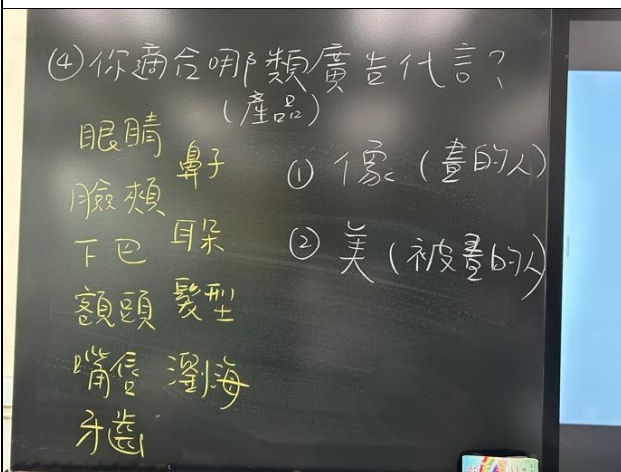 ④你適合哪類廣告代言?
(產品)
眼睛
臉頰
下巴
額頭
嘴唇
牙齒
鼻子
耳朵
髮型
瀏海
① 像(畫的人)
② 美(被畫的人)